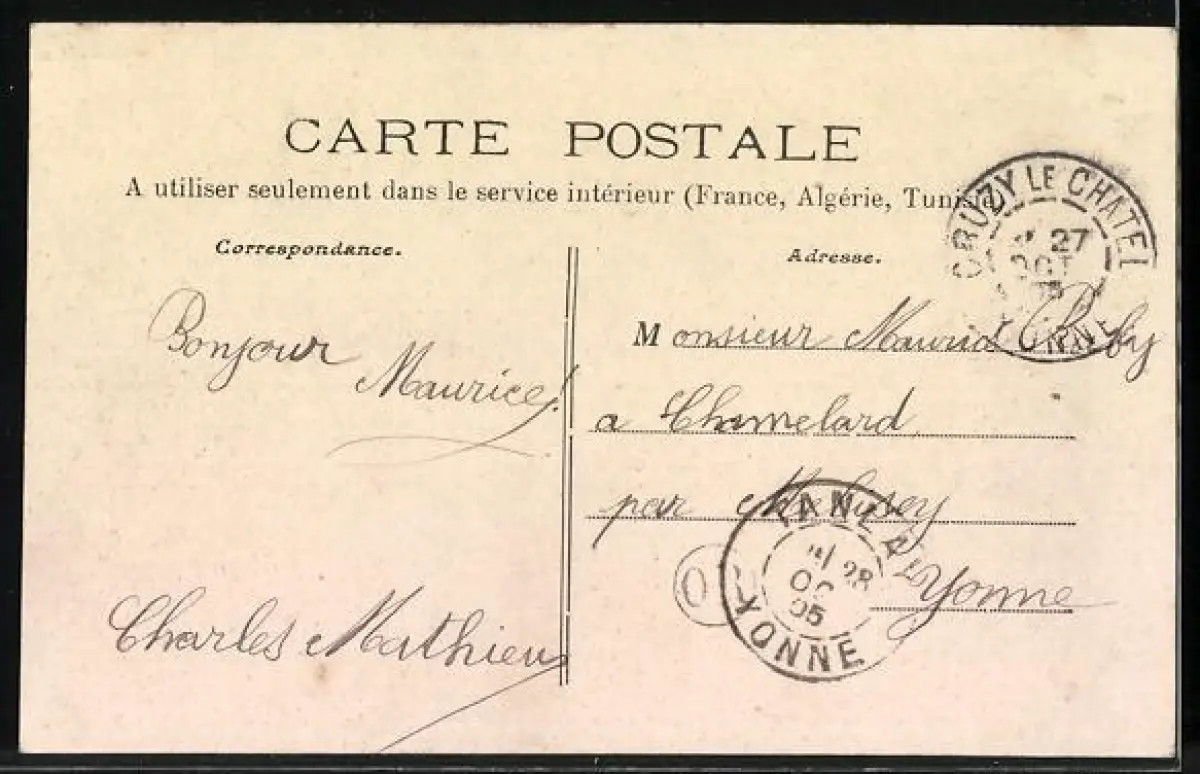 CARTE POSTALE
A utiliser seulement dans le service intérieur (France, Algérie, Tunisie)
Correspondance.
Adresse.
Bonjour
Maurice!
Charles Mathieu
Monsieur Maurice
a Chamelard
par
Yonne
CRUZY LE CHATEL
27
OCT
YONNE
TANLAY
28
OC
05
YONNE
O